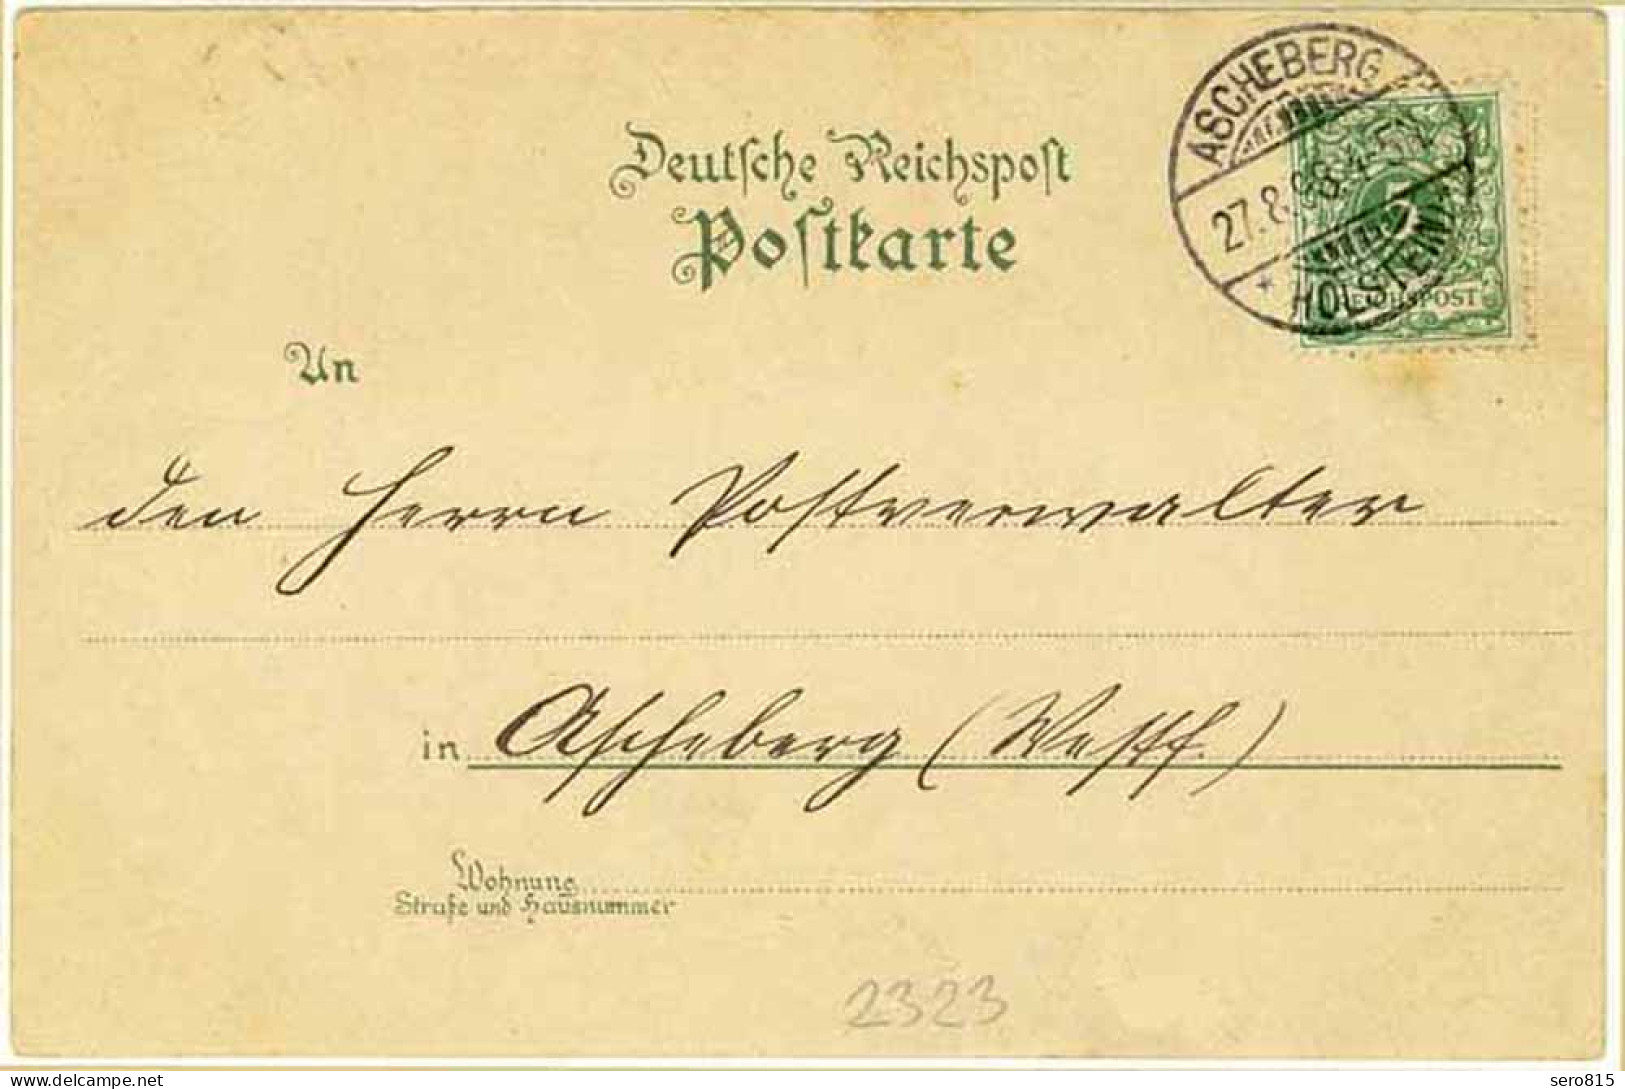 Deutsche Reichspost
Postkarte
ASCHEBERG
27.8.98.4-5N
* HOLSTEIN
REICHSPOST
An
den Herrn Postverwalter
in Ascheberg (Westf.)
Wohnung
Straße und Hausnummer
2323
delcampe.net
sero815